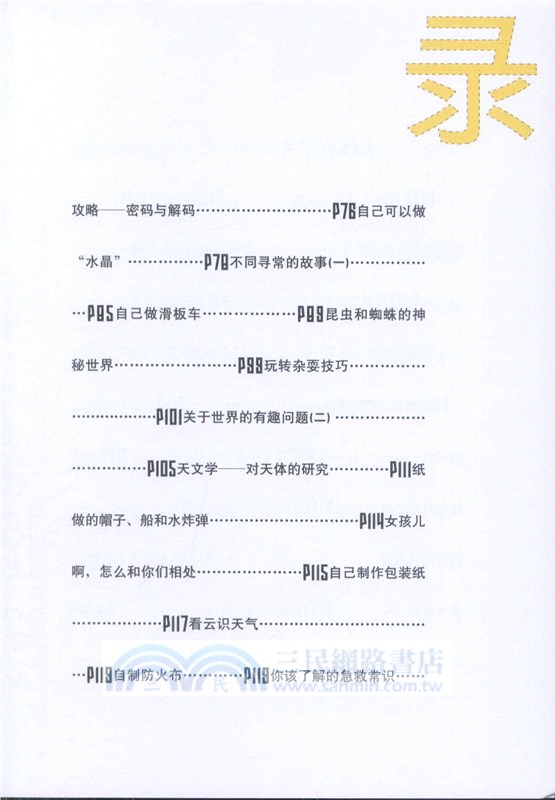 录
攻略——密码与解码……………………P76自己可以做
“水晶”……………P78不同寻常的故事(一)……………
…P85自己做滑板车………………P89昆虫和蜘蛛的神
秘世界…………………P99玩转杂耍技巧……………
………………P101关于世界的有趣问题(二)………………
……………P105天文学——对天体的研究…………P111纸
做的帽子、船和水炸弹………………………P114女孩儿
啊，怎么和你们相处………………P115自己制作包装纸
………………P117看云识天气…………………………
…P119自制防火布…………P119你该了解的急救常识……
三民
三民網路書店
www.sanmin.com.tw